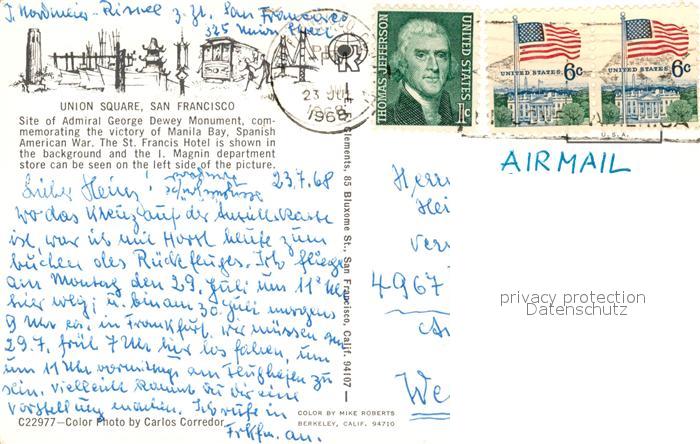 J. Nordmeier-Rissel z. Zt. San Francisco
325 Union Street
23 JUL
1968
THOMAS JEFFERSON
UNITED STATES
1c
UNITED STATES 6c
UNITED STATES 6c
U.S.A.
AIR MAIL
UNION SQUARE, SAN FRANCISCO
Site of Admiral George Dewey Monument, com-
memorating the victory of Manila Bay, Spanish
American War. The St. Francis Hotel is shown in
the background and the I. Magnin department
store can be seen on the left side of the picture.
23.7.68
Lieber Heinz!
Wo das Kreuz auf der Ansichtskarte
ist, war ich mit Horst heute zum
buchen des Rückfluges. Ich fliege
am Montag den 29. Juli um 11 Uhr
hier weg; u. bin am 30. Juli morgens
9 Uhr ca. in Frankfurt. Wir müssen am
29.7. früh 7 Uhr hier los fahren, um
um 11 Uhr vormittags am Flughafen zu
sein. Vielleicht kannst du dir eine
Vorstellung machen. Ich rufe in
Frkfm. an.
C22977—Color Photo by Carlos Corredor
Clements, 85 Bluxome St., San Francisco, Calif. 94107 —
COLOR BY MIKE ROBERTS
BERKELEY, CALIF. 94710
Herr
Hei
Ver
4967
We
privacy protection
Datenschutz